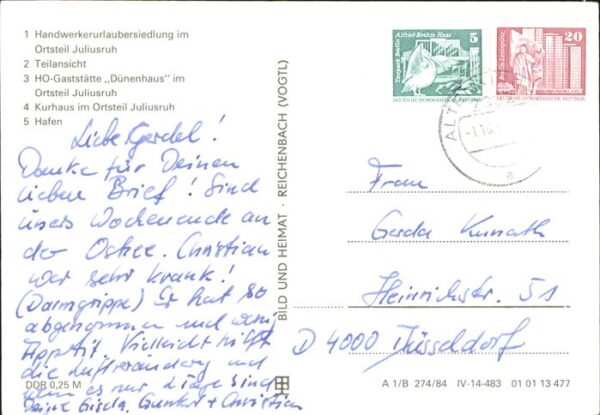 1 Handwerkerurlaubersiedlung im
Ortsteil Juliusruh
2 Teilansicht
3 HO-Gaststätte „Dünenhaus" im
Ortsteil Juliusruh
4 Kurhaus im Ortsteil Juliusruh
5 Hafen
Liebe Gerdel!
Danke für Deinen
lieben Brief! Sind
übers Wochenende an
der Ostsee. Christian
war sehr krank!
(Darmgrippe) Er hat so
abgenommen und wenig
Appetit. Vielleicht hilft
die Luftveränderg und
wenn es nur 2 Tage sind
Deine Gisela, Gunter + Christian
DDR 0,25 M
BILD UND HEIMAT · REICHENBACH (VOGTL)
Alfred-Brehm-Haus
Tierpark Berlin
5
DEUTSCHE DEMOKRATISCHE REPUBLIK
20
Berlin-Leninplatz
DEUTSCHE DEMOKRATISCHE REPUBLIK
ALTE
-1.10.
a
Frau
Gerda Kunath
Heinrichstr. 51
D 4000 Düsseldorf
A 1/B 274/84 IV-14-483 01 01 13 477